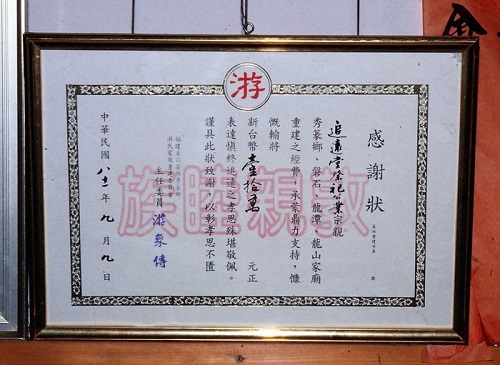 游
敦親睦族
感謝狀
追遠堂祭祀公業宗親
秀篆鄉、磐石、龍潭、龍山家廟
重建之經費，承蒙鼎力支持，慷
慨輸將
新台幣壹拾萬元正
表達慎終追遠之孝思殊堪敬佩。
謹具此狀致謝，以彰孝思不匱
福建省詔安縣秀篆鄉
游氏家廟重建委員會
主任委員 游象傳
中華民國八十一年九月九日